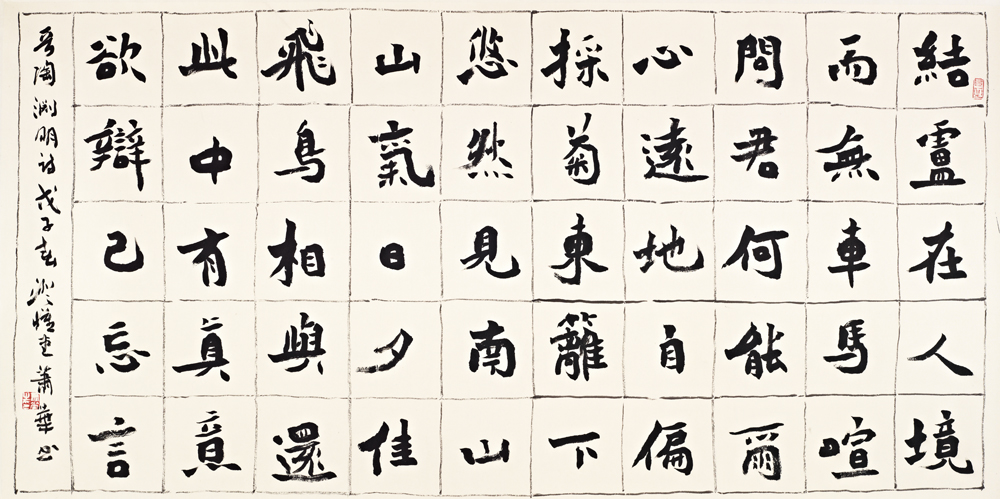 結盧在人境
而無車馬喧
問君何能爾
心遠地自偏
採菊東籬下
悠然見南山
山氣日夕佳
飛鳥相與還
此中有真意
欲辯己忘言
陶渊明詩戊子春 堂 蕭華书